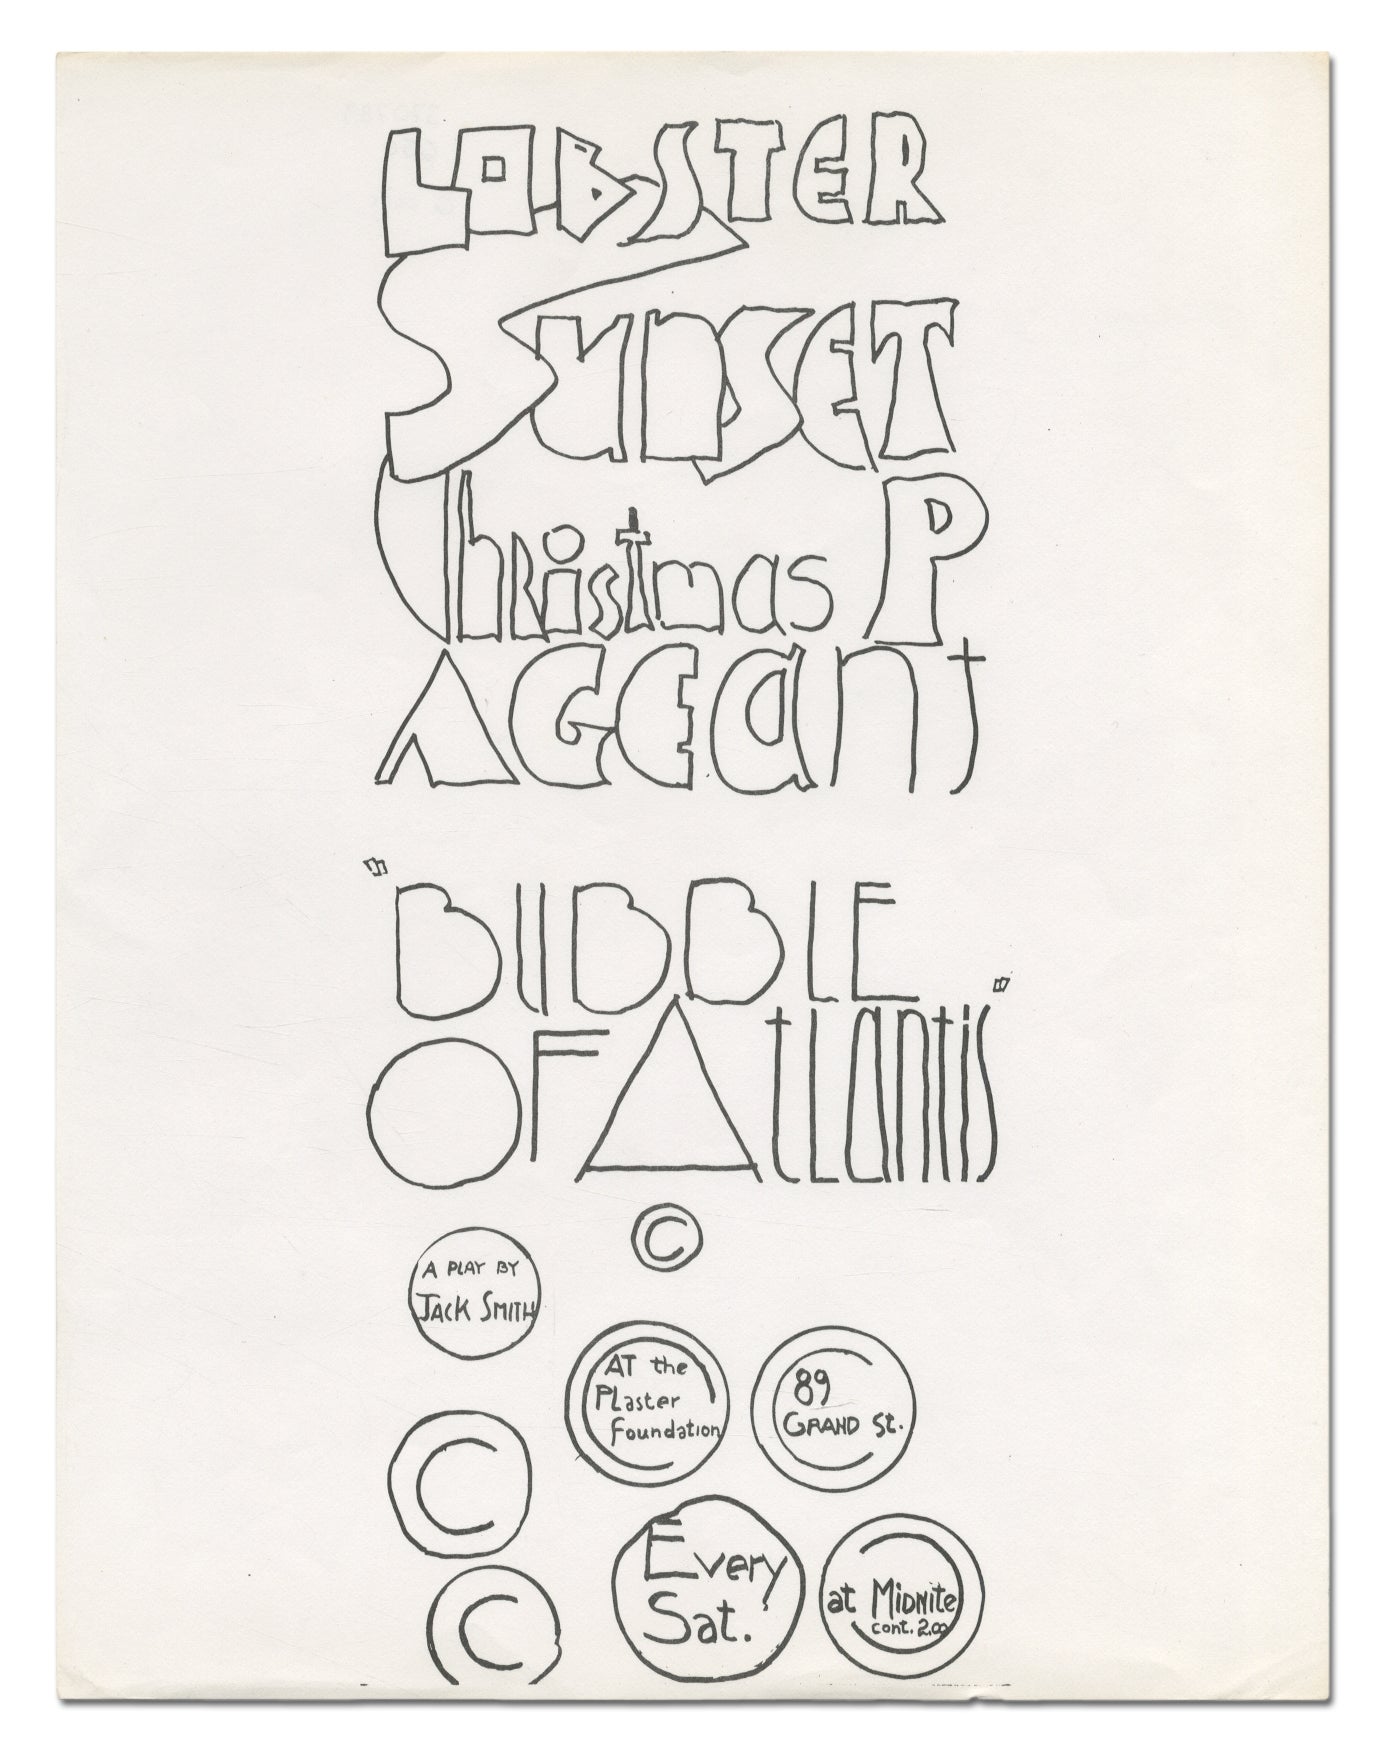 LOBSTER
SUNSET
Christmas P
AGEANt
"BUBBLE
OF Atlantis"
©
A PLAY BY
JACK SMITH
AT the
PLaster
Foundation
89
GRAND St.
©
Every
Sat.
at MIDNite
cont. 2.00
©